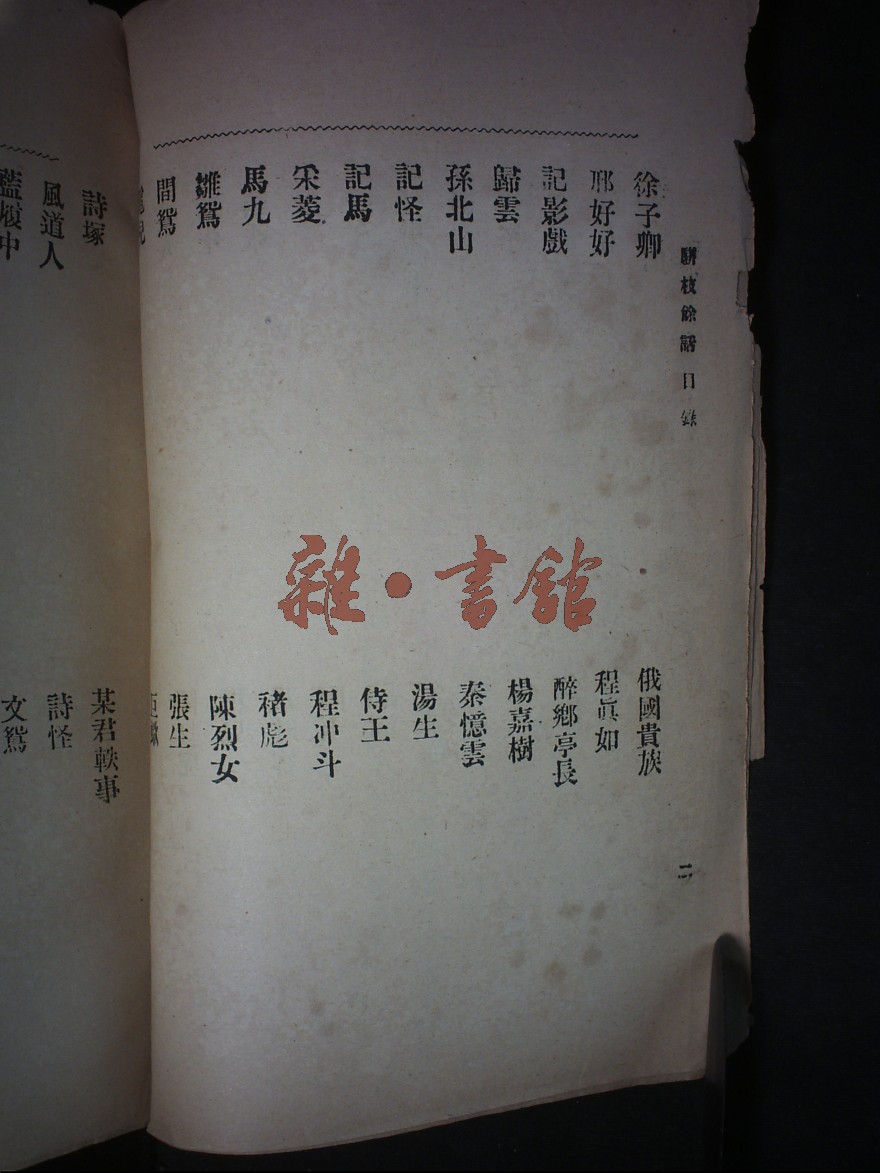 駢枝餘話目錄
徐子卿
俄國貴族
邢好好
程眞如
記影戲
醉鄉亭長
歸雲
楊嘉樹
孫北山
秦憶雲
記怪
湯生
記馬
侍王
采菱
程冲斗
馬九
褚彪
雛鴛
陳烈女
間鴛
張生
二
詩塚
某君軼事
風道人
詩怪
文鴛
雜·書館